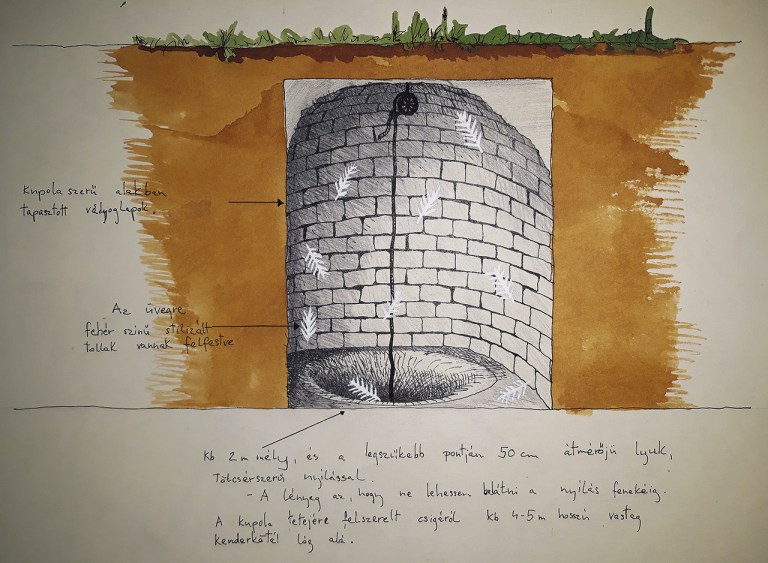 Kupola szerű alakban
tapasztott vályoglapok.
Az üvegre
fehér szinű stilizált
tollak vannak felfestve
Kb 2 m mély, és a legszűkebb pontján 50 cm átmérőjű lyuk,
tölcsérszerű nyilással.
- A lényeg az, hogy ne lehessen belátni a nyilás fenekéig.
A kupola tetejére felszerelt csigáról kb 4-5 m hosszú vastag
kenderkötél lóg alá.